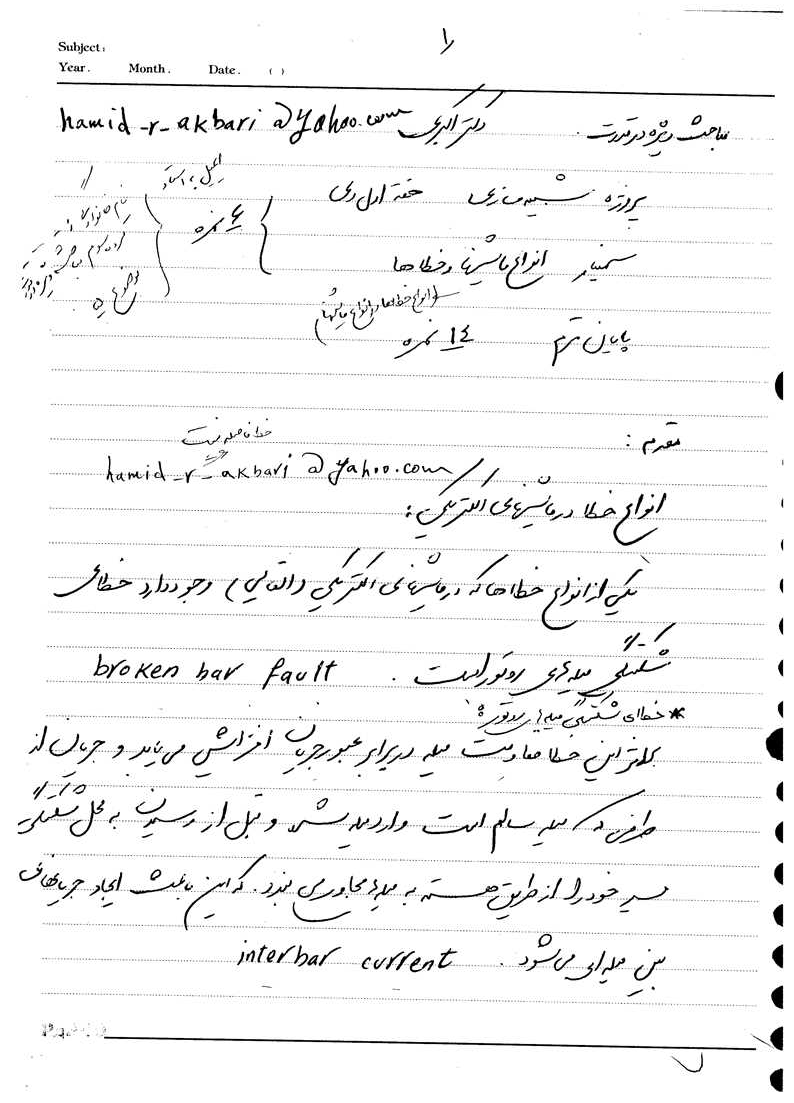 ۱
Subject:
Year. Month. Date. ( )
مباحث ویژه در قدرت. دکتر اکبری hamid-r-akbari@yahoo.com
پروژه شبیه سازی هفته اول دی
ایمیل به استاد
۶ نمره
نام خانوادگی
موضوع
سمینار انواع ماشینها و خطاها
(انواع خطاها در انواع ماشینها)
پایان ترم ۱۴ نمره
مقدمه:
خط فاصله نیست
hamid-r-akbari@yahoo.com
انواع خطا در ماشینهای الکتریکی:
یکی از انواع خطاها که در ماشینهای الکتریکی (القایی) وجود دارد خطای
شکستگی میله های روتور است. broken bar fault
* خطای شکستگی میله های روتور:
بر اثر این خطا مقاومت میله در برابر عبور جریان افزایش می یابد و جریان از
طرفی که میله سالم است وارد میله شده و قبل از رسیدن به محل شکستگی
مسیر خود را از طریق هسته به میله مجاور می برد. که این باعث ایجاد جریانهای
بین میله ای می شود. interbar current